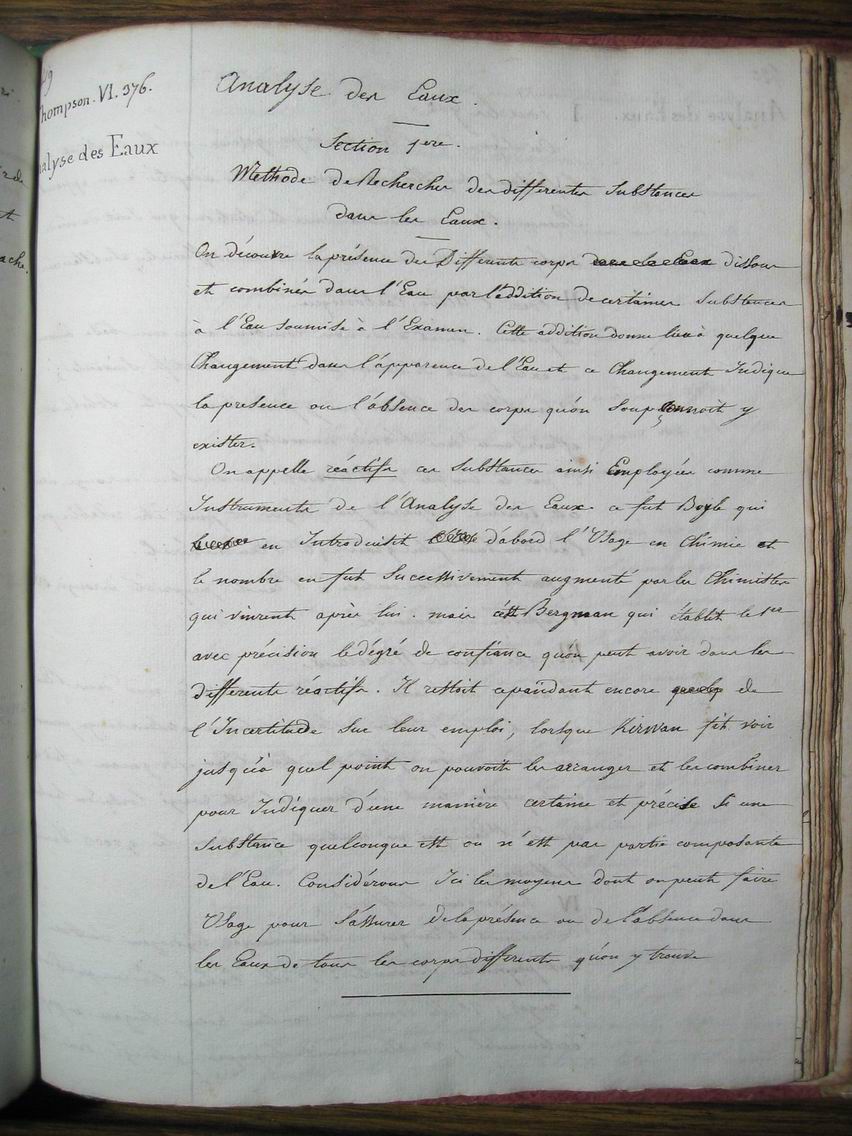 Thompson. VI. 376.
Analyse des Eaux
Analyse des Eaux.
Section 1ere.
Methode de Rechercher des differentes Substances
dans les Eaux.
On découvre la présence des Differents corps dans les Eaux dissous
et combinés dans l'Eau par l'addition de certaines Substances
à l'Eau soumise à l'Examen. Cette addition donne lieu à quelque
Changement dans l'apparence de l'Eau et ce Changement Indique
la presence ou l'absence des corps qu'on soupçonnoit y
exister.
On appelle réactifs ces Substances ainsi Employées comme
Instruments de l'Analyse des Eaux ce fut Boyle qui
en Introduisit d'abord l'Usage en Chimie et
le nombre en fut Successivement augmenté par les Chimistes
qui vinrent après lui. mais c'est Bergman qui établit le 1er
avec précision le dégré de confiance qu'on peut avoir dans les
differents réactifs. Il restoit cependant encore quelq de
l'Incertitude sur leur emploi, lorsque Kirwan fit voir
jusqu'à quel point on pouvoit les arranger et les combiner
pour Indiquer d'une manière certaine et précise Si une
Substance quelconque est ou n'est pas partie composante
de l'Eau. Considérons Ici les moyens dont on peut faire
Usage pour s'assurer de la présence ou de l'absence dans
les Eaux de tous les corps differents qu'on y trouve